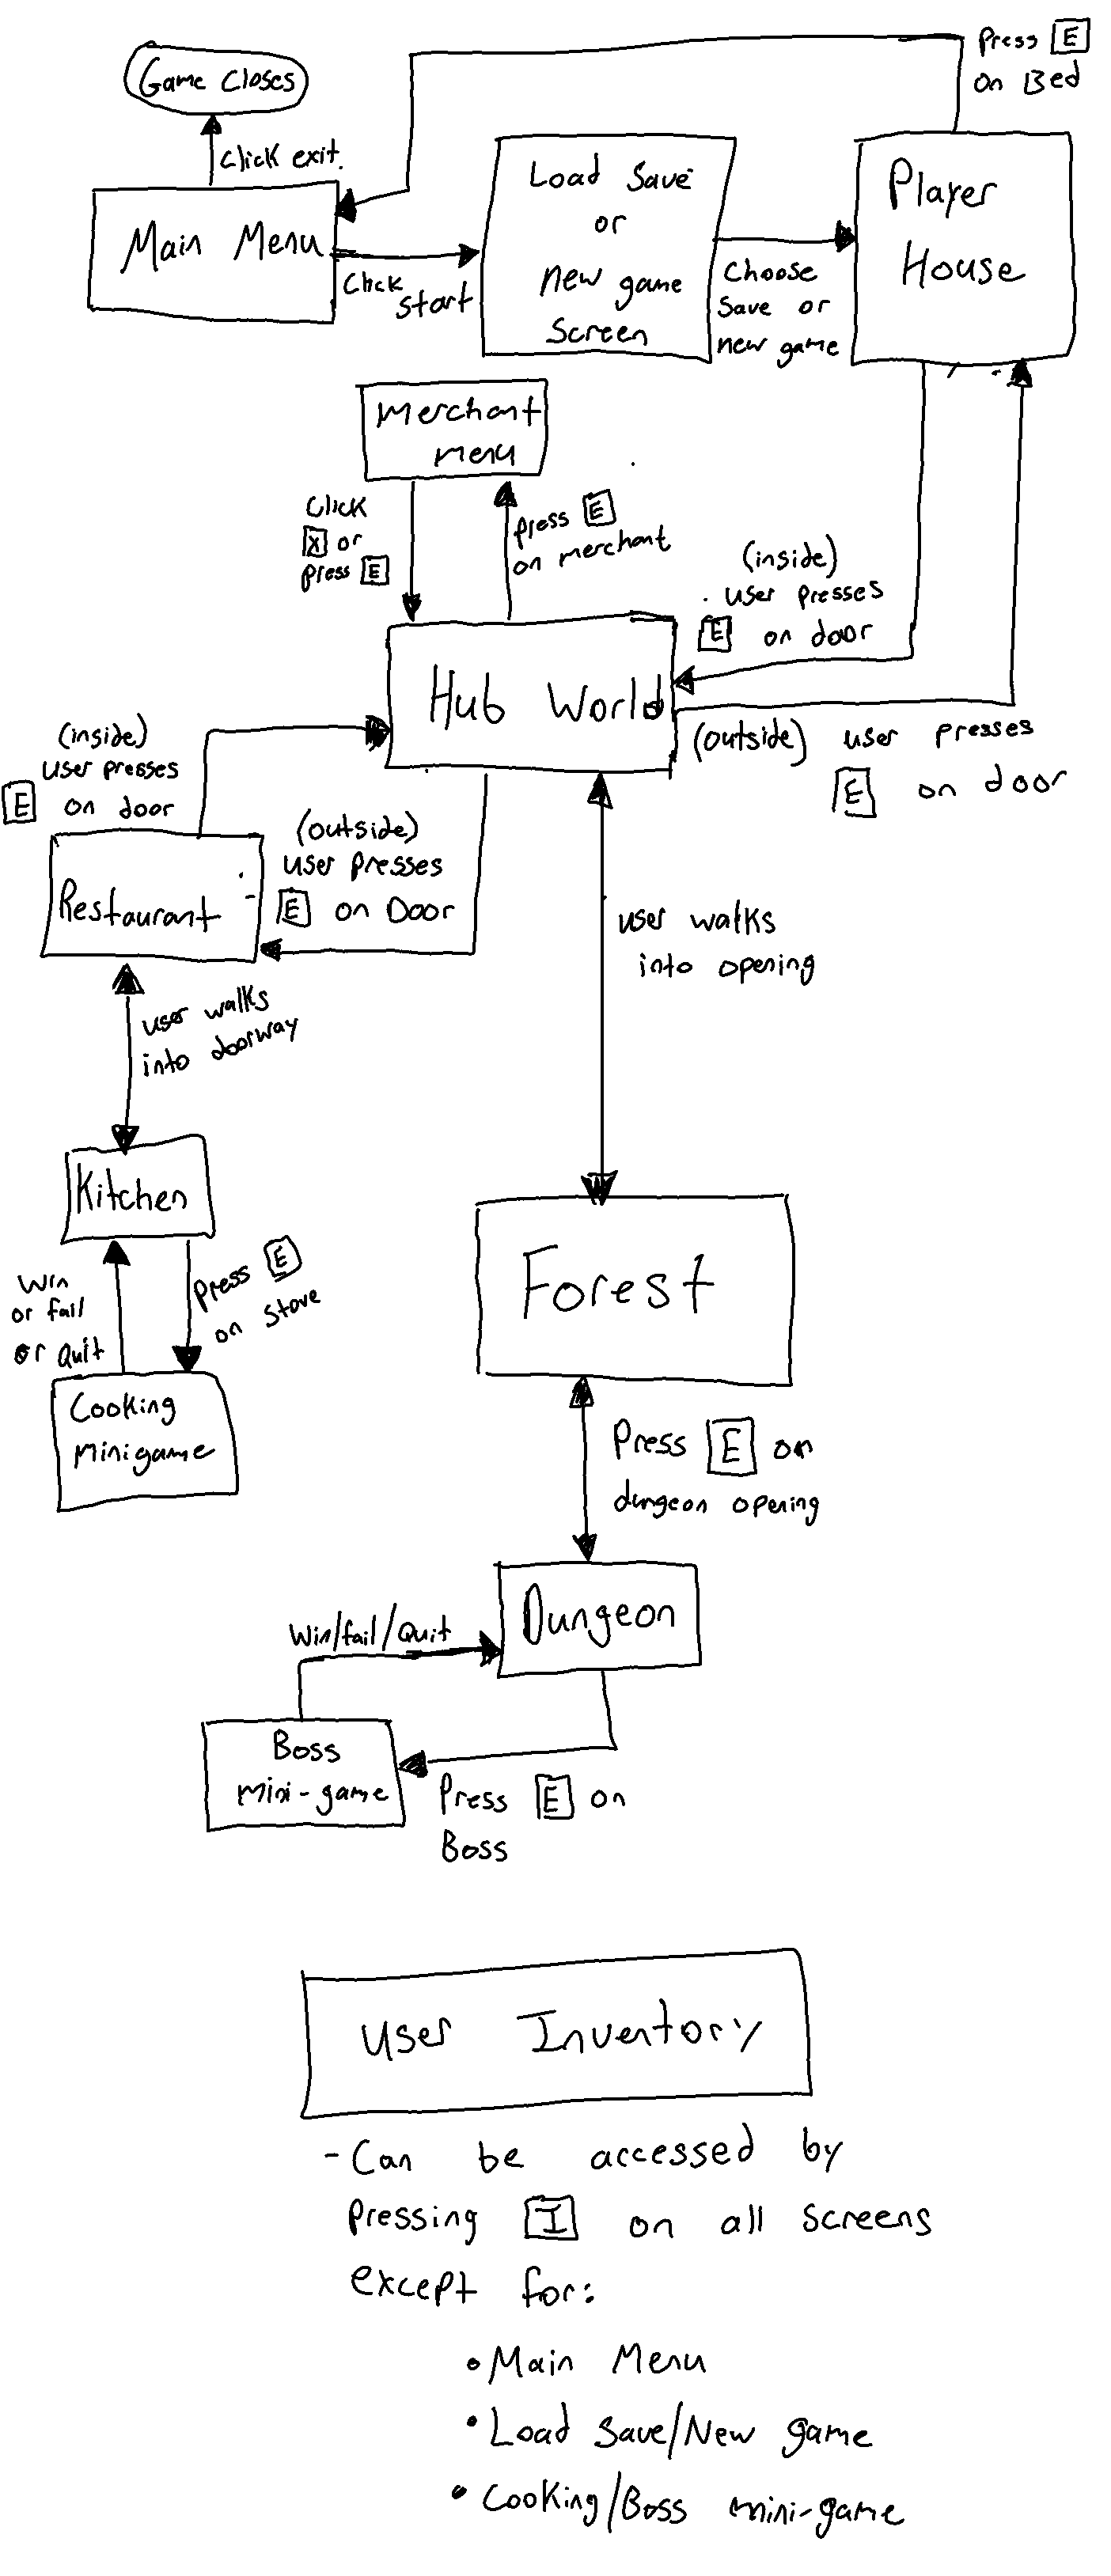 Press E
on Bed
Game Closes
Click exit.
Main Menu
Click
start
Load Save
or
New game
Screen
Choose
Save or
new game
Player
House
Merchant
menu
Click
X or
press E
press E
on merchant
(inside)
user presses
E on door
Hub World
(outside) user presses
E on door
(inside)
user presses
E on door
(outside)
user presses
E on Door
Restaurant
user walks
into opening
user walks
into doorway
Kitchen
Win
or fail
or Quit
Press E
on stove
Forest
Cooking
minigame
Press E on
dungeon opening
Dungeon
Win/fail/Quit
Boss
mini-game
Press E on
Boss
User Inventory
- Can be accessed by
pressing I on all screens
except for:
• Main Menu
• Load Save/New game
• Cooking/Boss mini-game